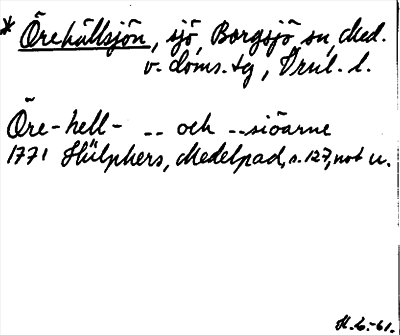 * Örehällsjön, sjö, Borgsjö sn, Med.
v. doms. tg, Vnl. l.
Öre-hell- -- och --siöarne
1771 Hülphers, Medelpad, s. 127, not u.
H.G.-61.